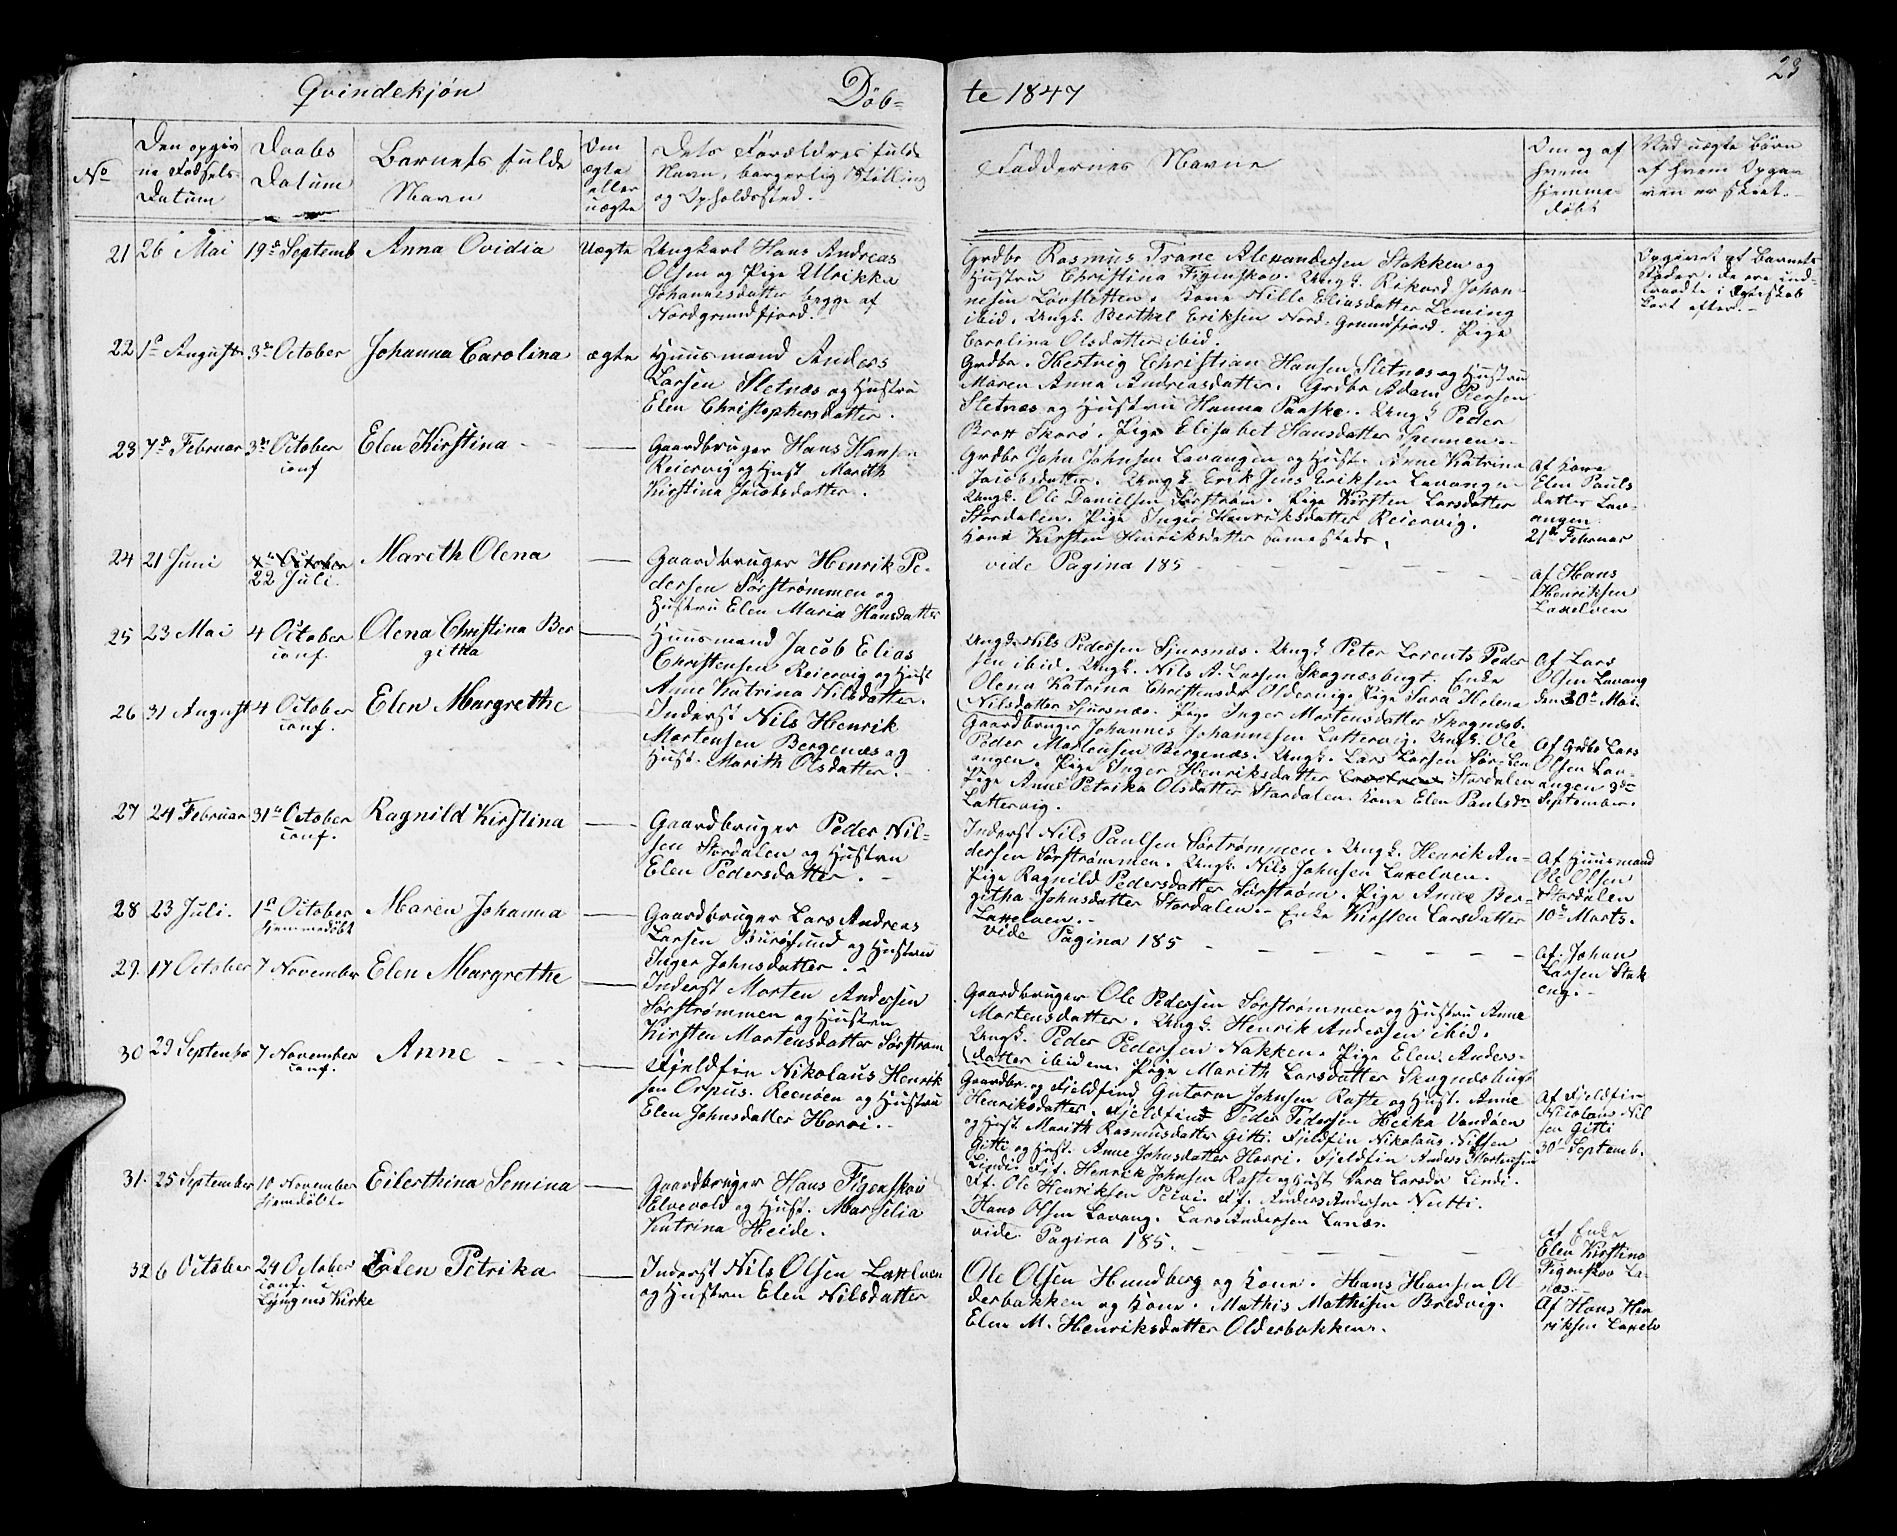 23
Qvindekjøn
Døb=
te 1847
No
Den opgiv
ne Fødsels-
Datum
Daabs
Datum
Barnets fulde
Navn
Om
ægte
eller
uægte
Dets Forældres fulde
Navn, borgerlig Stilling
og Opholdssted.
Faddernes Navne
Om og af
hvem
hjemme-
døbt
Ved uægte Børn
af hvem Opga-
ven er skeet.
21
26 Mai
19de Septemb
Anna Ovidia
Uægte
Ungkarl Hans Andreas
Olsen og Pige Ulrikka
Johannesdatter begge af
Nordgrundfjord.
Grdbr Rasmus Trane Alexandersen Stakken og
Hustru Christina Figenskov. Ungk. Rikard Johan-
nesen Løvsletten. Kone Nille Eliasdatter Leming
ibid. Ungk. Berthel Eriksen Nord-Grundfjord. Pige
Carolina Olsdatter ibid.
Opgivet af Barnets
Fader. De ere ind-
traadte i Egteskab
kort efter.
22
1ste August
3de October
Johanna Carolina
ægte
Huusmand Anders
Larsen Sletnæs og Hustru
Elen Christophersdatter.
Grdbr. Hertvig Christian Hansen Sletnæs og Hustru
Maren Anna Andreasdatter. Grdbr Adam Persen
Sletnæs og Hustru Hanna Paaske. Ungk Peder
Brott Skarø. Pige Elisabet Hansdatter Spennen.
23
7de Februar
3de October
conf
Elen Kirstina
Gaardbruger Hans Hansen
Reiervig og Hust. Marith
Kirstina Jacobsdatter.
Grdbr John Johnsen Lavangen og Hust. Anne Katrina
Jacobsdatter. Ungk. Erik Jens Eriksen Lavangen
Ungk. Ole Danielsen Sørstrøm. Pige Kirsten Larsdatter
Stordalen. Pige Inger Henriksdatter Reiervig.
Kone Kirsten Henriksdatter sammesteds.
Af Kone
Elen Pauls
datter Lav-
angen
21de Februar
24
21 Juni
October
22 Juli.
Marith Olena
Gaardbruger Henrik Pe-
dersen Sørstrømmen og
Hustru Elen Maria Hansdatter
vide Pagina 185
af Hans
Henriksen
Laxelven
25
23 Mai
4 October
conf.
Olena Christina Ber
gitta
Huusmand Jacob Elias
Christensen Reiervig og Hust
Anne Katrina Nilsdatter.
Ungk. Nils Pedersen Sjursnæs. Ungk. Peter Lorents Peder
sen ibid. Ungk. Nils A. Larsen Skognæsbugt. Enke
Olena Katrina Christensdr Oldervig. Pige Sara Helena
Nilsdatter Sjursnæs. Pige Inger Mortensdatter Skognæsb.
Af Lars
Olsen Lavang
den 30te Mai.
26
31 August
4 October
conf.
Elen Margrethe
Inderst Nils Henrik
Mortensen Bergenæs og
Hust. Marith Olsdatter.
Gaardbruger Johannes Johannesen Lattervig. Ungk. Ole
Peder Mortensen Bergenæs. Ungk. Lars Larsen Sør-Lav
angen. Pige Inger Henriksdatter Stordalen
Pige Anne Petrika Olsdatter Stordalen. Kone Elen Paulsdr
Lattervig.
Af Grdbr Lars
Olsen Lav-
angen 3de
September.
27
24 Februar
31te October
conf.
Ragnild Kirstina
Gaardbruger Peder Nil-
sen Stordalen og Hustru
Elen Pedersdatter.
Inderst Nils Paulsen Sørstrømmen. Ungk. Henrik An-
dersen Sørstrømmen. Ungk. Nils Johnsen Laxelven.
Pige Ragnild Pedersdatter Sørstrøm. Pige Anne Ber-
githa Johnsdatter Stordalen. Enke Kirsten Larsdatter
Laxelven.
Af Huusmand
Ole Olsen
Stordalen
10de Marts.
28
23 Juli.
1ste October
hjemmedøbt
Maren Johanna
Gaardbruger Lars Andreas
Larsen Burøsund og Hustru
Inger Johnsdatter.
vide Pagina 185
af Johan
Larsen Stak
eng.
29.
17 October
7 November
Elen Margrethe
Inderst Morten Andersen
Sørstrømmen og Hustru
Kirsten Mortensdatter Sørstrøm
Gaardbruger Ole Pedersen Sørstrømmen og Hustru Anne
Mortensdatter. Ungk. Henrik Andersen ibid.
Ungk. Peder Pedersen Nakken. Pige Elen Anders-
datter ibidem. Pige Marith Larsdatter Skognæsbugt
30
29 Septembr
7 November
conf.
Anne
Fjeldfin Nikolaus Henrik
sen Orpus. Reenøen og Hustru
Elen Johnsdatter Horvi.
Gaardbr. og Fjeldfind Gutorm Johnsen Raste og Hust. Anne
Henriksdatter. Fjeldfind Peder Pedersen Heika Vandøen
og Hust. Marith Rasmusdatter Gitti. Fjeldfin Nikolaus Nilsen
Gitti og Hust. Anne Johnsdatter Horri. Fjeldfin Anders Mortensen
Lindi. Fjf. Henrik Johnsen Raste og Hust Sara Larsdr Lindi.
Ff. Ole Henriksen Peivi. Ff. Anders Andersen Nutti.
Hans Olsen Lavang. Lars Andersen Lanæs.
Af Fjeldfin
Nicolaus Nil
sen Gitti
30te Septemb.
31.
25 September
10 November
hjemdøbt
Eilerthina Semina
Gaardbruger Hans Figenskov
Elvevold og Hust. Marselia
Katrina Heide.
vide Pagina 185.
af Enke
Elen Kirstina
Figenskov La-
næs.
32
6 October
24 October
conf. i
Lyngens Kirke
Elen Petrika
Inderst Nils Olsen Laxelven
og Hustru Elen Nilsdatter
Ole Olsen Hundberg og Kone. Hans Hansen Ol
derbakken og Kone. Mathis Mathisen Bredvig.
Elen M. Henriksdatter Olderbakken.
Af Hans Hen
riksen Laxelv